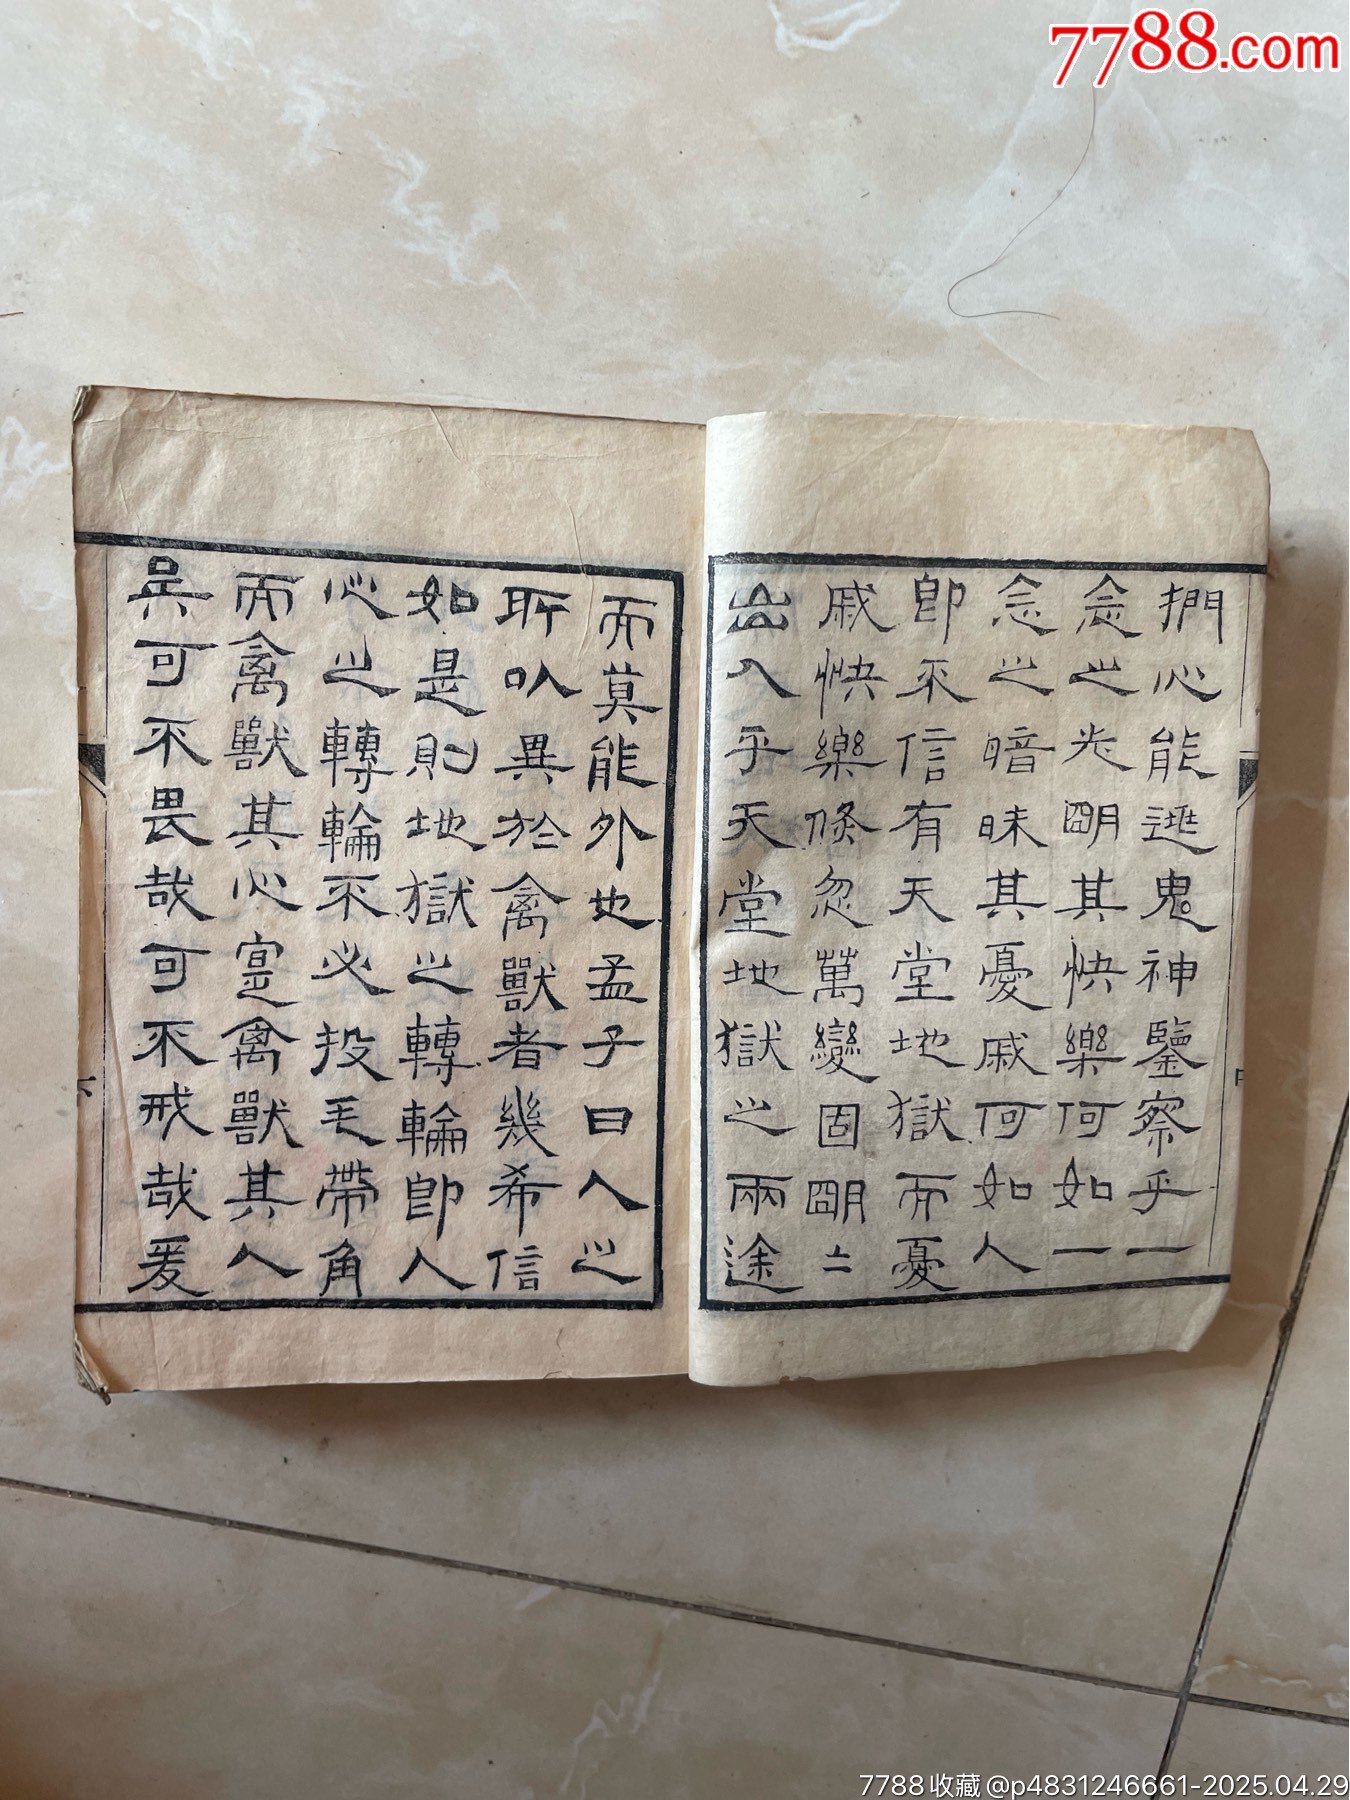 7788.com
捫心能逃鬼神鑒察乎一
念之光朙其快樂何如一
念之暗昧其憂戚何如人
即不信有天堂地獄而憂
戚快樂倏忽萬變固朙二
出入乎天堂地獄之兩途
而莫能外也孟子曰人之
所以異於禽獸者幾希信
如是則地獄之轉輪即人
心之轉輪不必投毛帶角
而禽獸其心寔禽獸其人
矣可不畏哉可不戒哉爰
7788收藏@p4831246661-2025.04.29